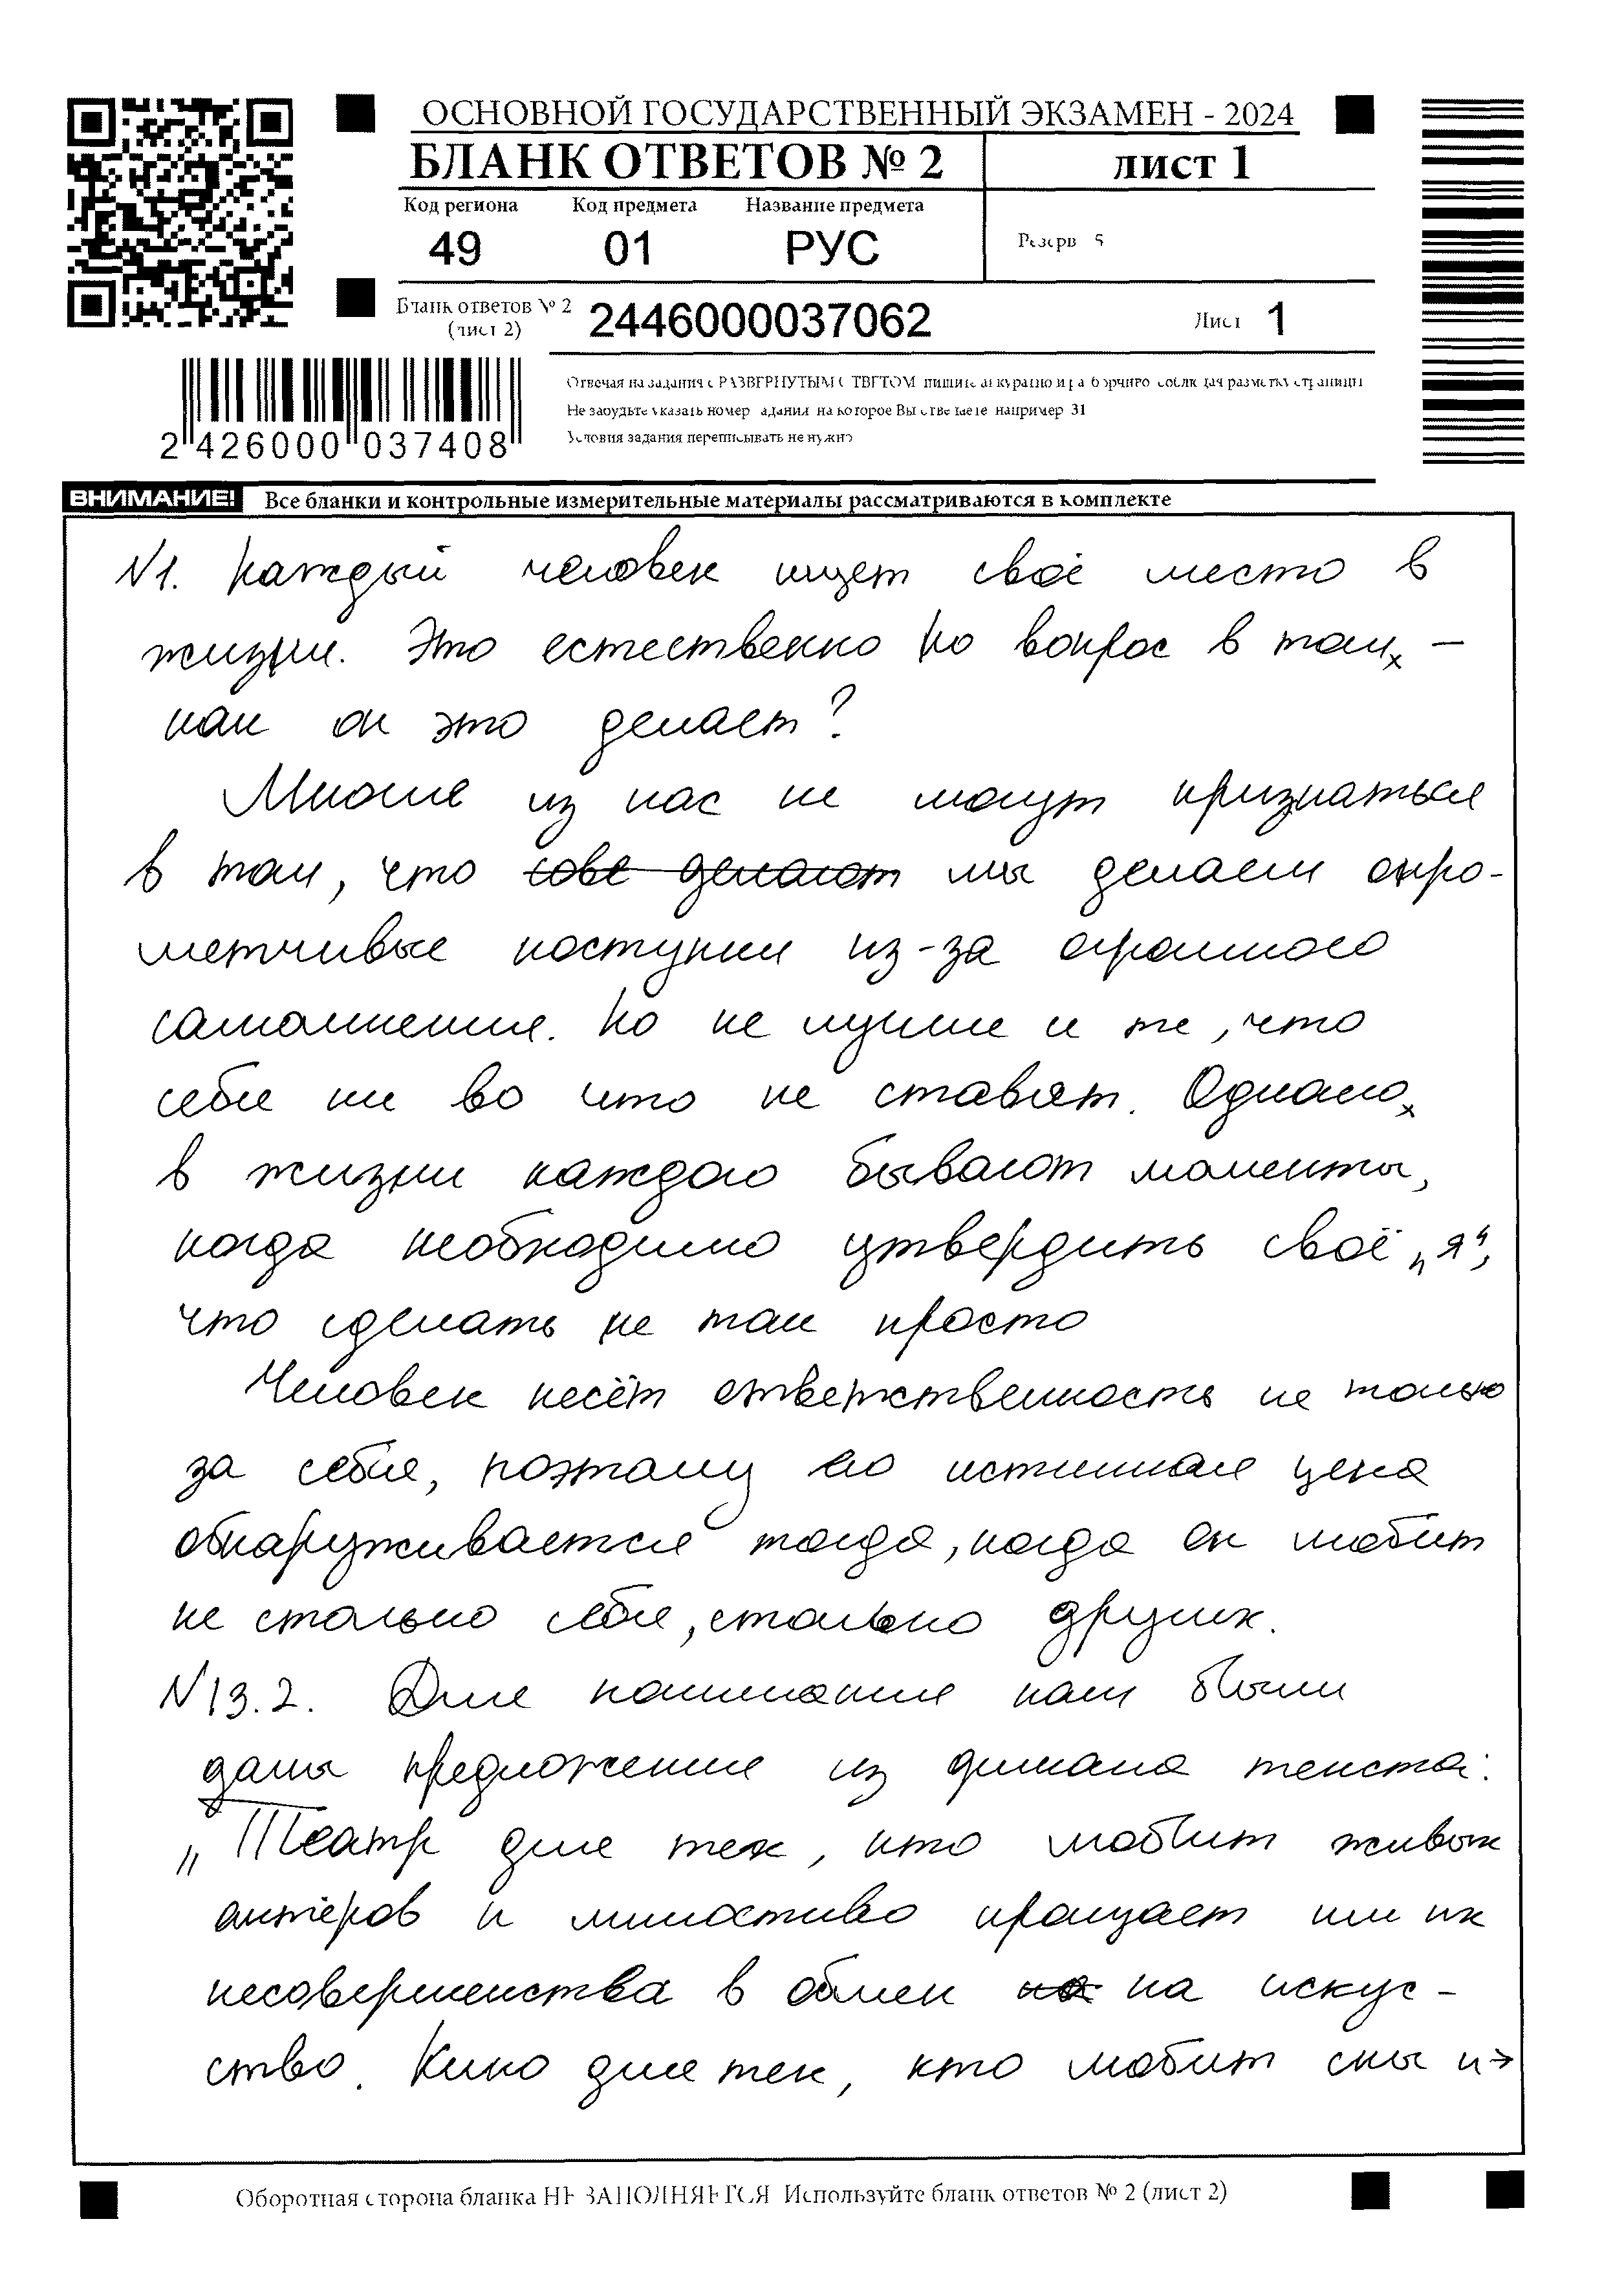 ОСНОВНОЙ ГОСУДАРСТВЕННЫЙ ЭКЗАМЕН - 2024
БЛАНК ОТВЕТОВ № 2
лист 1
Код региона Код предмета Название предмета
49 01 РУС
Резерв - 5
Бланк ответов № 2
(лист 2)
2446000037062
Лист 1
2 426000 037408
Отвечая на задания с РАЗВЕРНУТЫМ ОТВЕТОМ, пишите аккуратно и разборчиво, соблюдая разметку страницы
Не забудьте указать номер задания, на которое Вы отвечаете, например 31
Условия задания переписывать не нужно
ВНИМАНИЕ! Все бланки и контрольные измерительные материалы рассматриваются в комплекте
№1. Каждый человек ищет своё место в
жизни. Это естественно Но вопрос в том, –
как он это делает?
Многие из нас не могут признаться
в том, что себе делают мы делаем опро-
метчивые поступки из-за огромного
самомнения. Но не лучше и те, что
себя ни во что не ставят. Однако,
в жизни каждого бывают моменты,
когда необходимо утвердить своё „я",
что сделать не так просто
Человек несёт ответственность не только
за себя, поэтому его истинная цена
обнаруживается тогда, когда он любит
не столько себя, столько других.
№13.2. Для понимания нам были
даны предложение из финала текста:
„Театр для тех, кто любит живых
актёров и милостиво прощает им их
несовершенства в обмен на на искус-
ство. Кино для тех, кто любит сны и→
Оборотная сторона бланка НЕ ЗАПОЛНЯЕТСЯ. Используйте бланк ответов № 2 (лист 2)